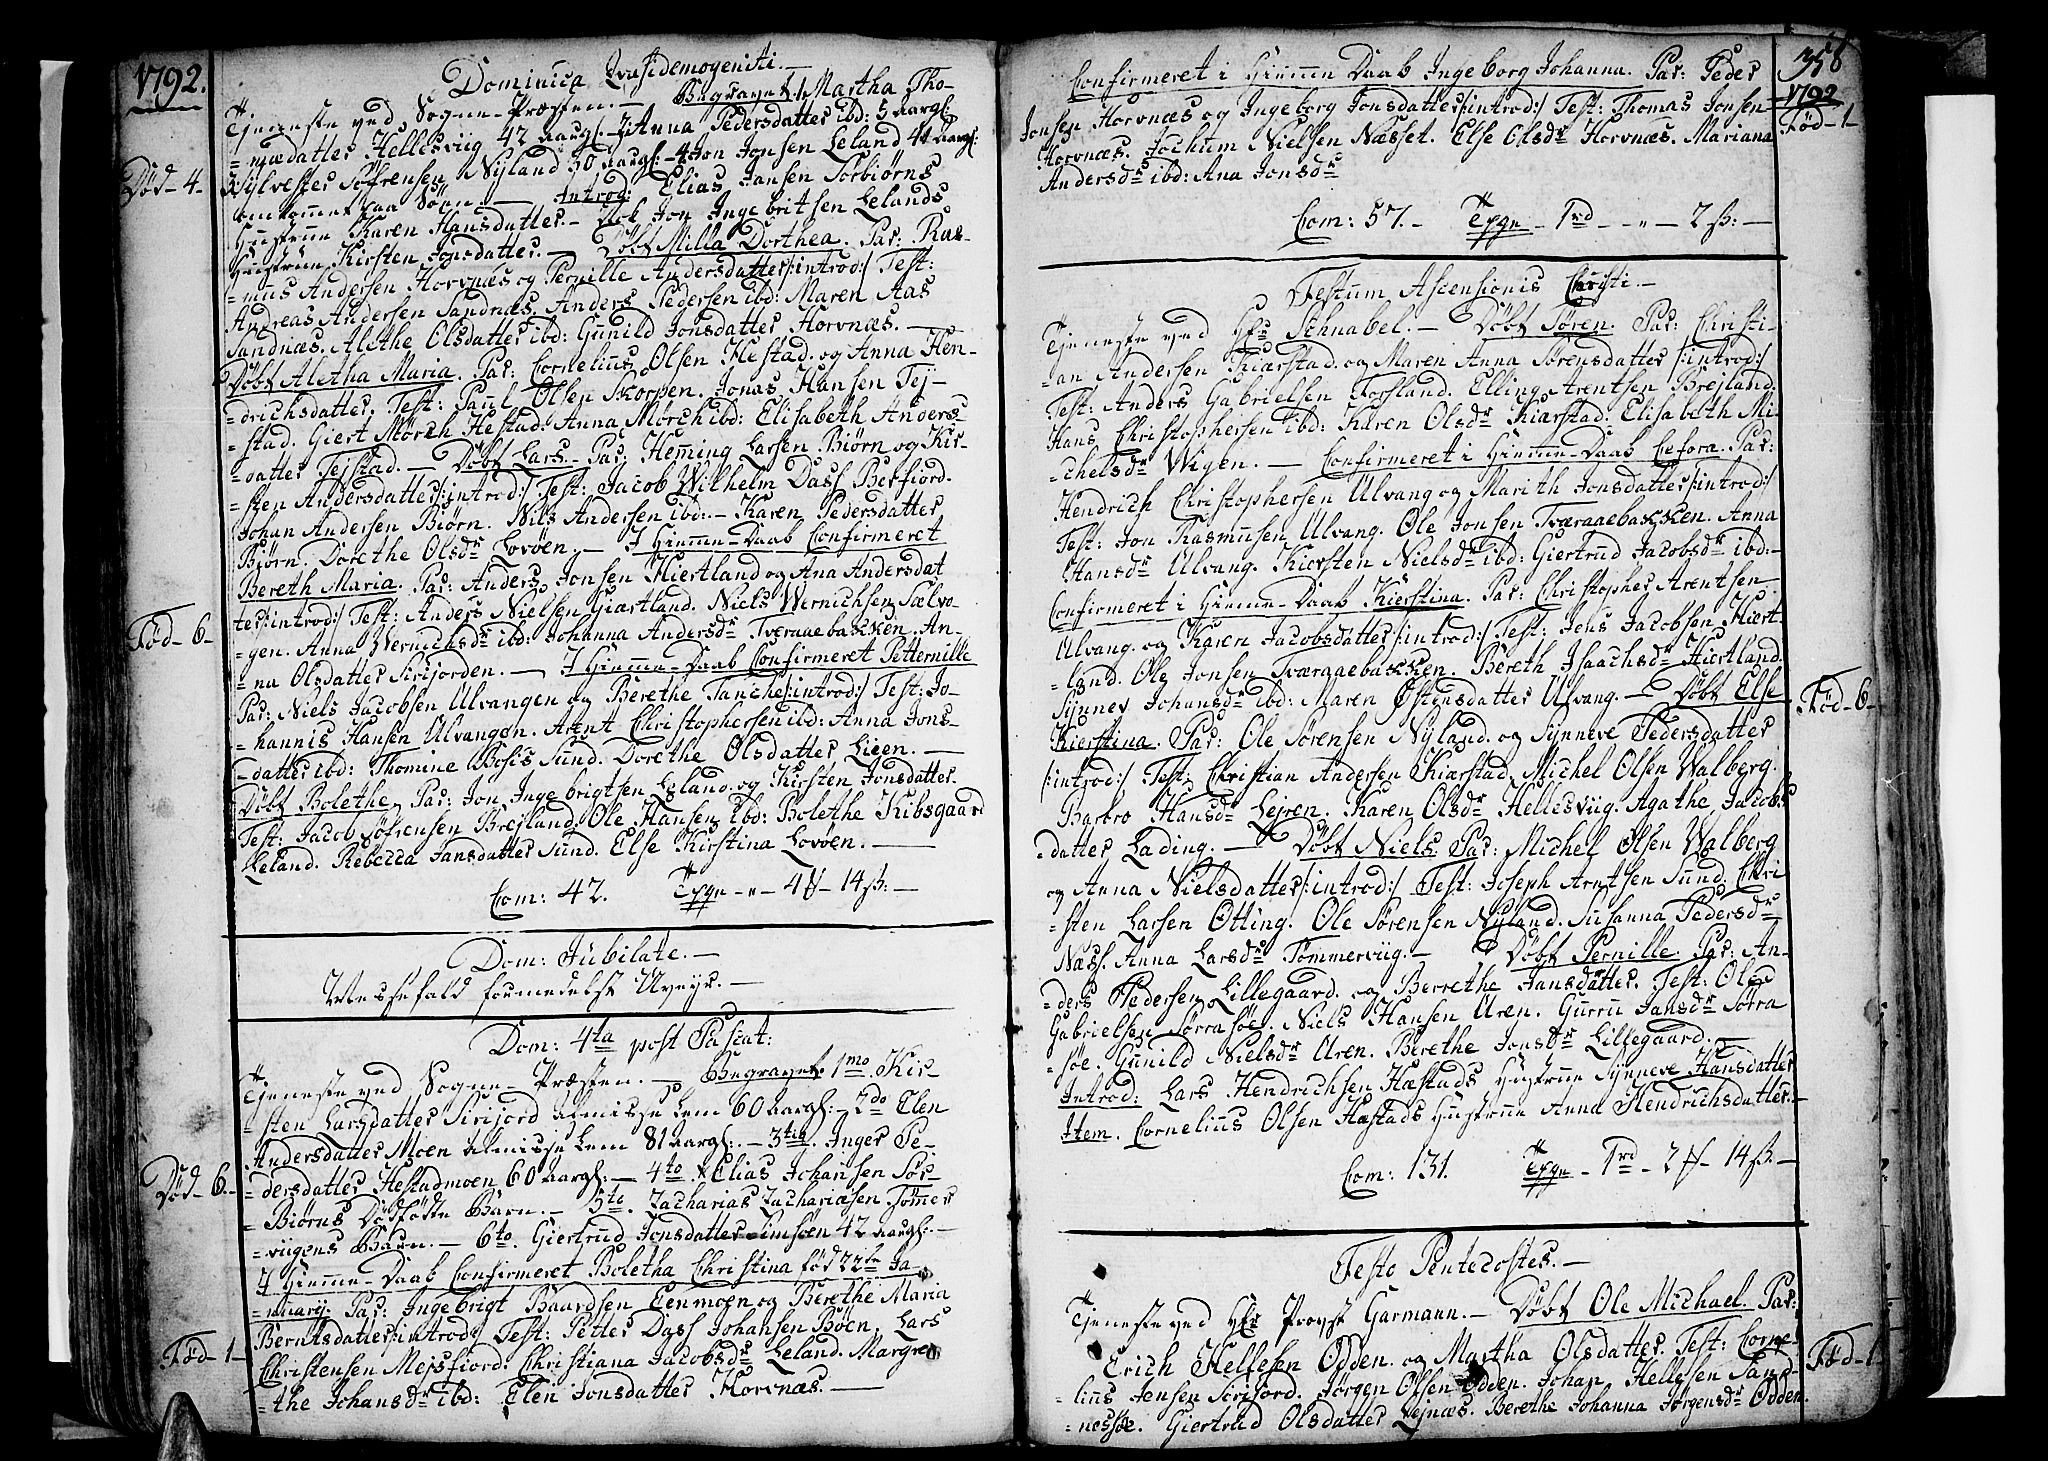 1792.
Dominica Quasidemogeniti.—
Tjeneste ved Sogne-Præsten.— Begravet. 1. Martha Tho-
=mædatter Hellesviig 42 aargl: 2. Anna Pedersdatter ibd: 5 aargl:
Død-4- Sylvester Søfrensen Nyland 50 aargl:- 4. Jon Jonsen Leland 41 aargl:
omkommet paa Søen.— Introd: Elias Jansen Sørbiørns
Hustrue Karen Hansdatter.— Nok Jon Ingebritsen Lelands
Hustrue Kirsten Jonsdatter.— Døbt Milla Dorthea. Par: Ras-
=mus Andersen Horvnæs og Pernille Andersdatter /:introd:/ Test:
Andreas Andersen Sandnæs. Anders Pedersen ibd: Maren Aas
Sandnæs. Alethe Olsdatter ibd: Gunild Jonsdatter Horvnæs.—
Døbt Aletha Maria. Par: Cornelius Olsen Hestad. og Anna Hen-
=drichsdatter. Test: Paul Olsen Skorpen. Jonas Hansen Tej-
=stad. Giert Mørch Hestad. Anna Mørch ibd: Elisabeth Anders
=datter Tejstad.— Døbt Lars. Par: Hemming Larsen Biørn og Kir-
=sten Andersdatter /:introd:/ Test: Jacob Wilhelm Dass Berfiord.
Johan Andersen Biørn. Nils Andersen ibd:- Karen Pedersdatter
Biørn. Dorethe Olsdr Lovøen.— I Hiemme-Daab Confirmeret
Bereth Maria. Par: Anders Jonsen Hiertland og Ana Andersdat
Fød-6- ter /:introd:/ Test: Anders Nielsen Giærtland. Niels Wernichsen Sælvo-
=gen. Anna Wernichsdr ibd: Johanna Andersdr Tveraaebakken. An-
=na Olsdatter Sirijorden.— I Hiemme-Daab Confirmeret Petternille
Par: Niels Jacobsen Ulvangen og Berethe Tanche /:introd:/ Test: Jo-
=hannis Hansen Ulvangen. Arent Christophersen ibd: Anna Jons-
=datter ibd: Thomine Bosis Sund. Dorethe Olsdatter Lieen.—
Døbt Bolethe. Par: Jon Ingebrigtsen Leland. og Kirsten Jonsdatter.
Test: Jacob Søfrensen Brejland. Ole Hansen ibd: Bolethe Kibsgaard
Leland. Rebecca Jansdatter Sund. Else Kirstina Lovøen.—
Com: 42. Tavle - „ - 4 - 14 ß:—
Dom: Jubilate.—
Messefald formedelst Uveyr.—
Dom: 4ta post Pascat:
Tjeneste ved Sogne-Præsten.— Begravet. 1mo. Kir-
=sten Larsdatter Sirijord Almisse Lem 60 aargl:- 2do Elen
Andersdatter Moen Almisse Lem 81 aargl:.- 3tio. Inger Pe-
Død-6.- =dersdatter Hestadmoen 60 aargl:- 4to Elias Johansen Sør-
=Biørns Dødfødte Barn.- 5to. Zacharias Zachariæsen Tømer
=viigens Barn.- 6to. Giertrud Jonsdatter Simsøen 42 aargl:—
I Hiemme-Daab Confirmeret Boletha Christina fød 22de Ja-
=nuarij. Par: Ingebrigt Baardsen Eenmoen og Berethe Maria
Berntsdatter /:introd:/ Test: Petter Dass Johansen Bøen. Lars
Fød-1- Christensen Mejsfiord. Christiana Jacobsdr Leland. Margre
=the Johansdr ibd: Elen Jonsdatter Horvnæs.—
358
1792
Confirmeret i Hiemme Daab Ingeborg Johanna. Par: Peder
Jonsen Horvnæs og Ingeborg Jonsdatter /:introd:/ Test: Thomas Jonsen Fød-1-
Horvnæs. Jochum Nielsen Næsset. Else Olsdr Horvnæs. Mariana
Andersdr ibd: Ana Jonsdr
Com: 57.- Tavle - 1rd - - „ - 2 ß:—
Festum Ascensionis Christi.—
Tjeneste ved Hr Schnabel.— Døbt Søren. Par: Christi-
=an Andersen Kiærstad. og Maren Anna Sørensdatter /:introd:/
Test: Anders Gabrielsen Forsland. Elling Arentsen Brejland.
Hans Christophersen ibd: Karen Olsdr Kiærstad. Elisabeth Mi-
=chelsdr Wigen.— Confirmeret i Hiemme-Daab Cefora. Par:
Hendrich Christophersen Ulvang og Marith Jonsdatter /:introd:/
Test: Jon Rasmusen Ulvang. Ole Jonsen Tværaaebakken. Anna
Hansdr Ulvang. Kiersten Nielsdr ibd: Giertrud Jacobsdr ibd:-
Confirmeret i Hiemme-Daab Kierstina. Par: Christopher Arentsen
Ulvang. og Karen Jacobsdatter /:introd:/ Test: Jens Jacobsen Hiert-
=land. Ole Jonsen Tværaaebakken. Bereth Isaachsdr Hiertland.
Synnev Johansdr ibd: Maren Østensdatter Ulvang.— Døbt Else Fød-6-
Kierstina. Par: Ole Sørensen Nyland. og Synneve Pedersdatter
/:introd:/ Test: Christian Andersen Kiærstad. Michel Olsen Walberg.
Barbro Hansdr Lejren. Karen Olsdr Hellesviig. Agathe Jacobs
=datter Lading.— Døbt Niels Par: Michel Olsen Walberg
og Anna Nielsdatter /:introd:/ Test: Joseph Arntsen Sund. Chri
=sten Larsen Otting. Ole Sørensen Nyland. Susanna Pedersdr
Næss. Anna Larsdr Tømmerviig.— Døbt Pernille. Par: An-
=ders Pedersen Lillegaard. og Berrethe Jansdatter. Test: Ole
Gabrielsen Sørra søe. Niels Hansen Uren. Gurru Jansdr Sørra
søe. Gunild Nielsdr Uren. Berethe Jonsdr Lillegaard.—
Introd: Lars Hendrichsen Hæstads Hustrue Synneve Hansdatter
Item. Cornelius Olsen Hæstads Hustrue Anna Hendrichsdatter.—
Com: 131. Tavle - 1rd - 2 - 14 ß.—
Festo Pentecostes.—
Tjeneste ved Hr Provst Garmann.— Døbt Ole Michael. Par:
Erich Hellesen Odden. og Martha Olsdatter. Test: Corne- Fød-1-
=lius Jensen Sørifjord. Jørgen Olsen Odden. Johan Hellesen Sand-
=nessøe. Giertrud Olsdatter Lejnæs. Berethe Johanna Jørgensdr Odden.